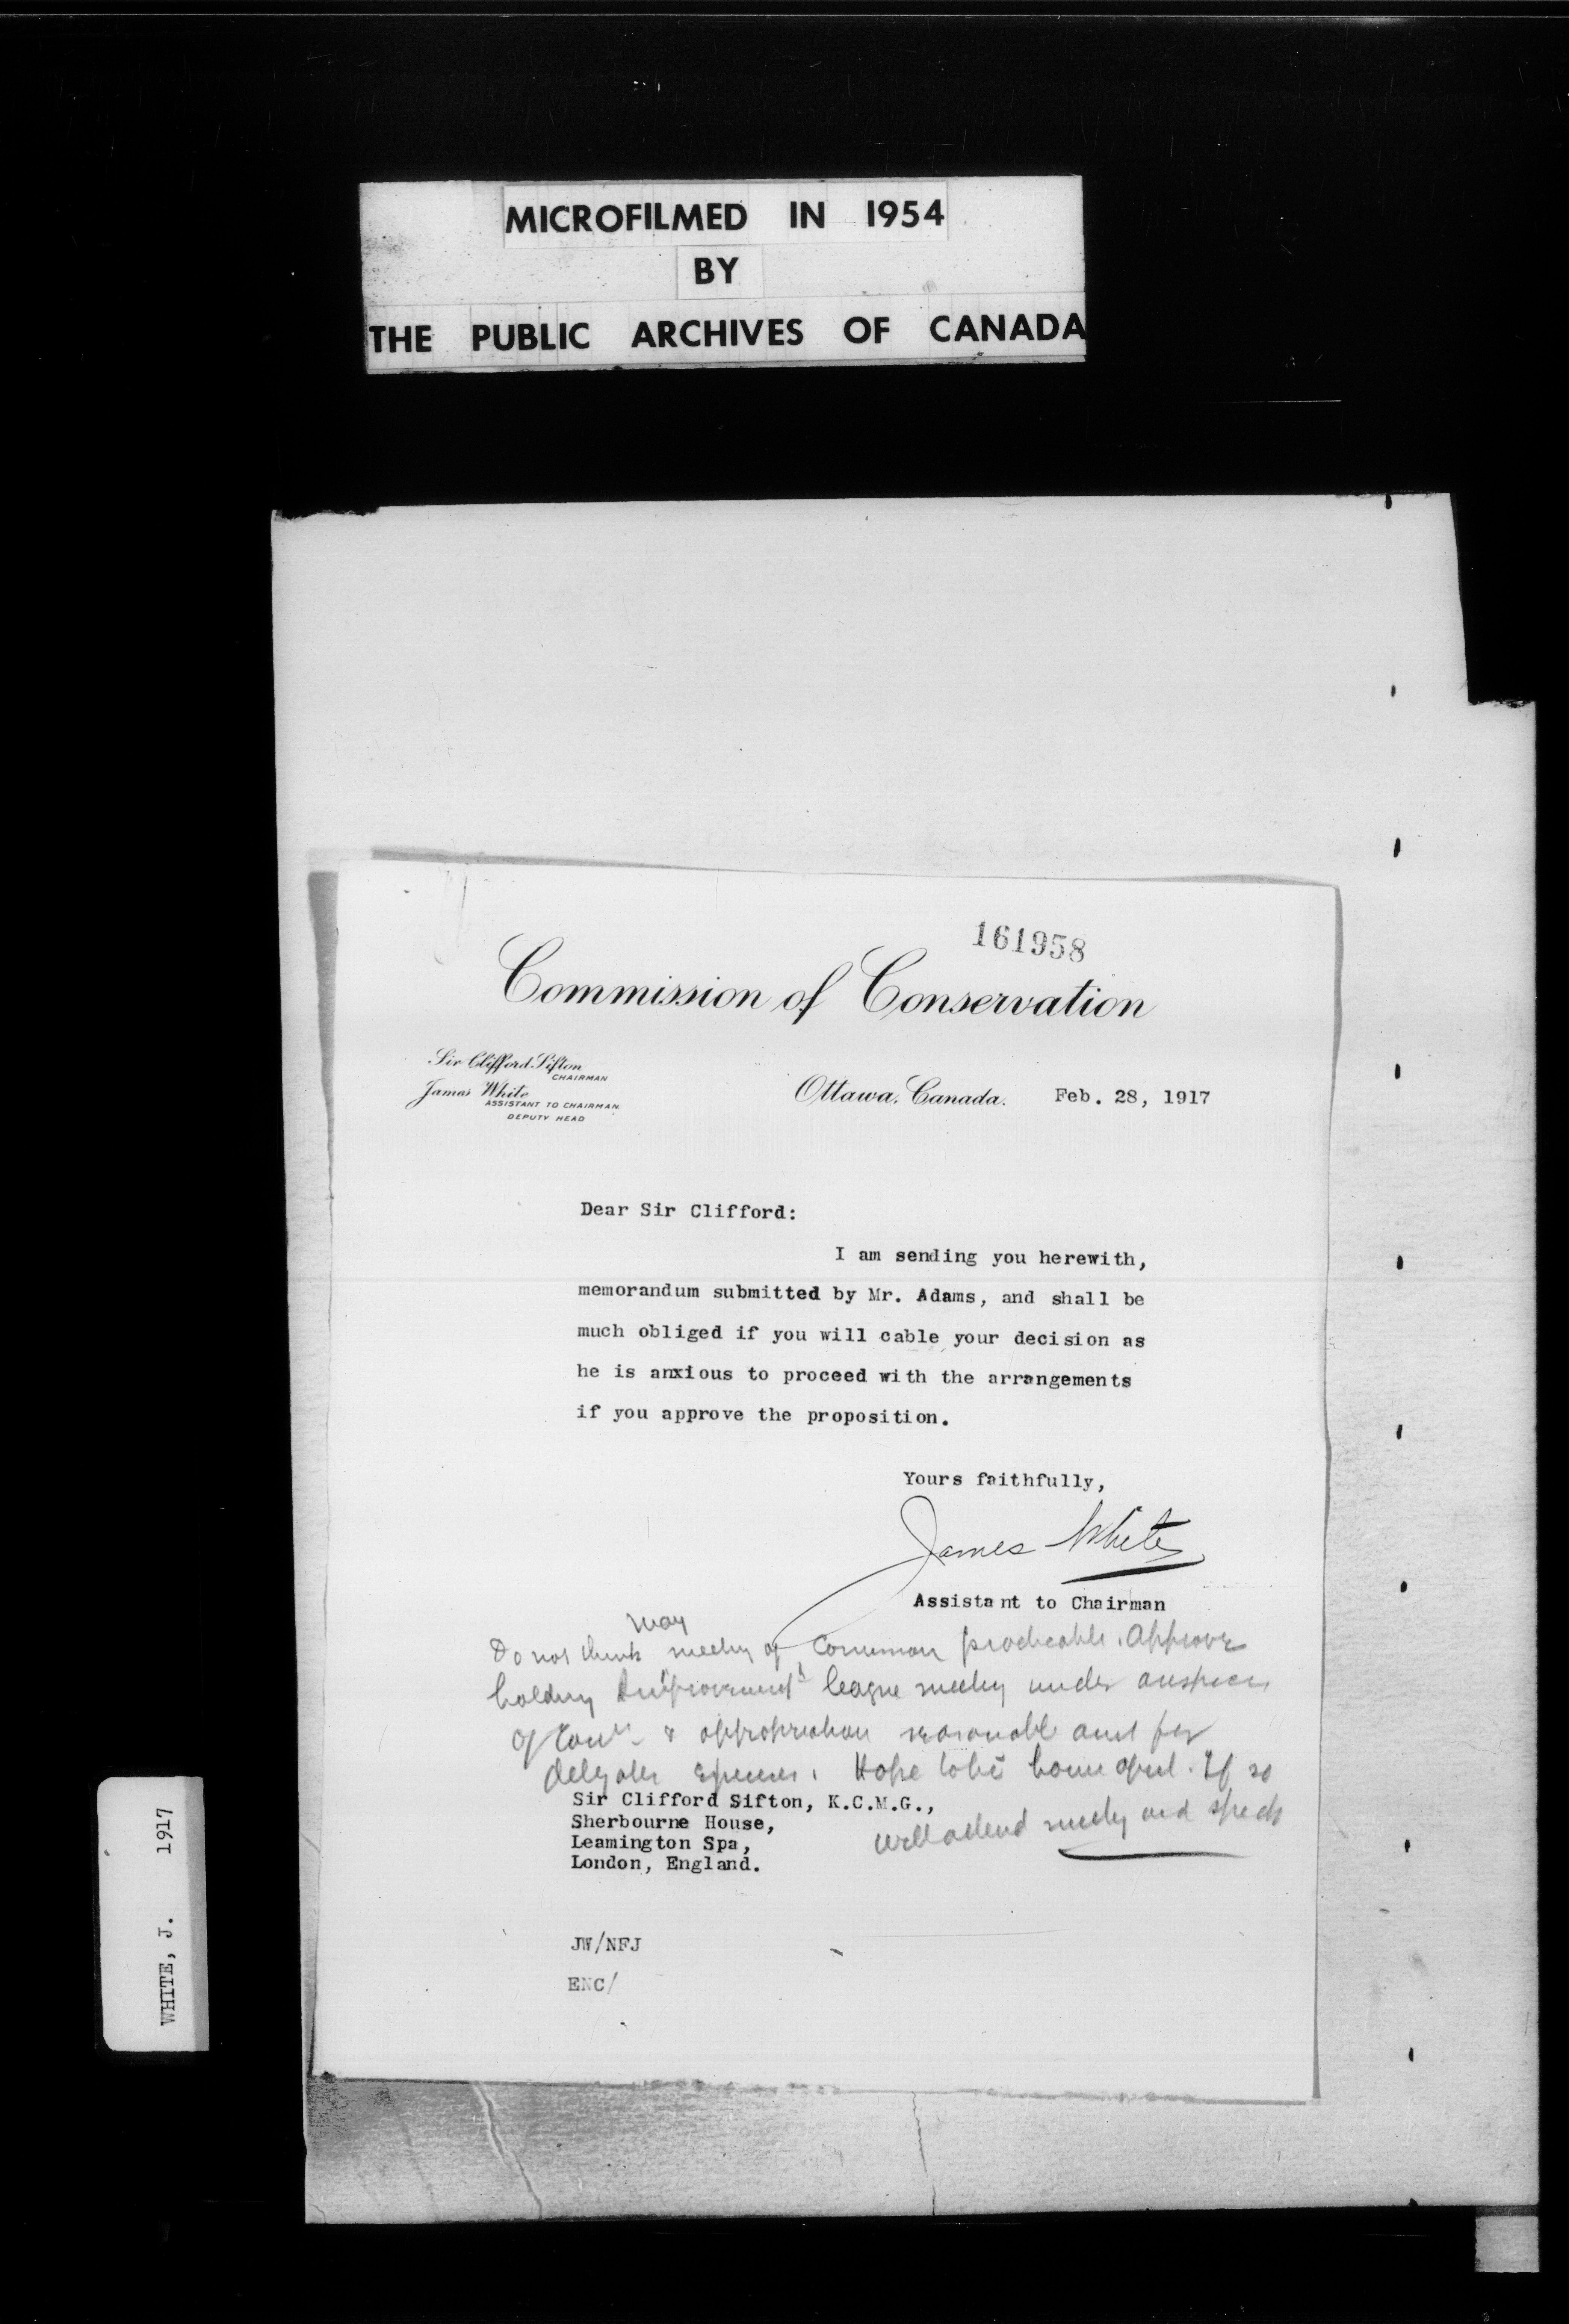 MICROFILMED IN 1954
BY
THE PUBLIC ARCHIVES OF CANADA
161958
Commission of Conservation
Sir Clifford Sifton
CHAIRMAN
James White
ASSISTANT TO CHAIRMAN
DEPUTY HEAD
Ottawa, Canada. Feb. 28, 1917
Dear Sir Clifford:
I am sending you herewith,
memorandum submitted by Mr. Adams, and shall be
much obliged if you will cable your decision as
he is anxious to proceed with the arrangements
if you approve the proposition.
Yours faithfully,
James White
Assistant to Chairman
May
Do not think meeting of Commission practicable. Approve
holding Improvement league meeting under auspices
of & appropriation reasonable amt for
delegates expenses. Hope to be home April. If so
will attend meeting and speak
Sir Clifford Sifton, K.C.M.G.,
Sherbourne House,
Leamington Spa,
London, England.
JW/NFJ
ENC/
WHITE, J. 1917